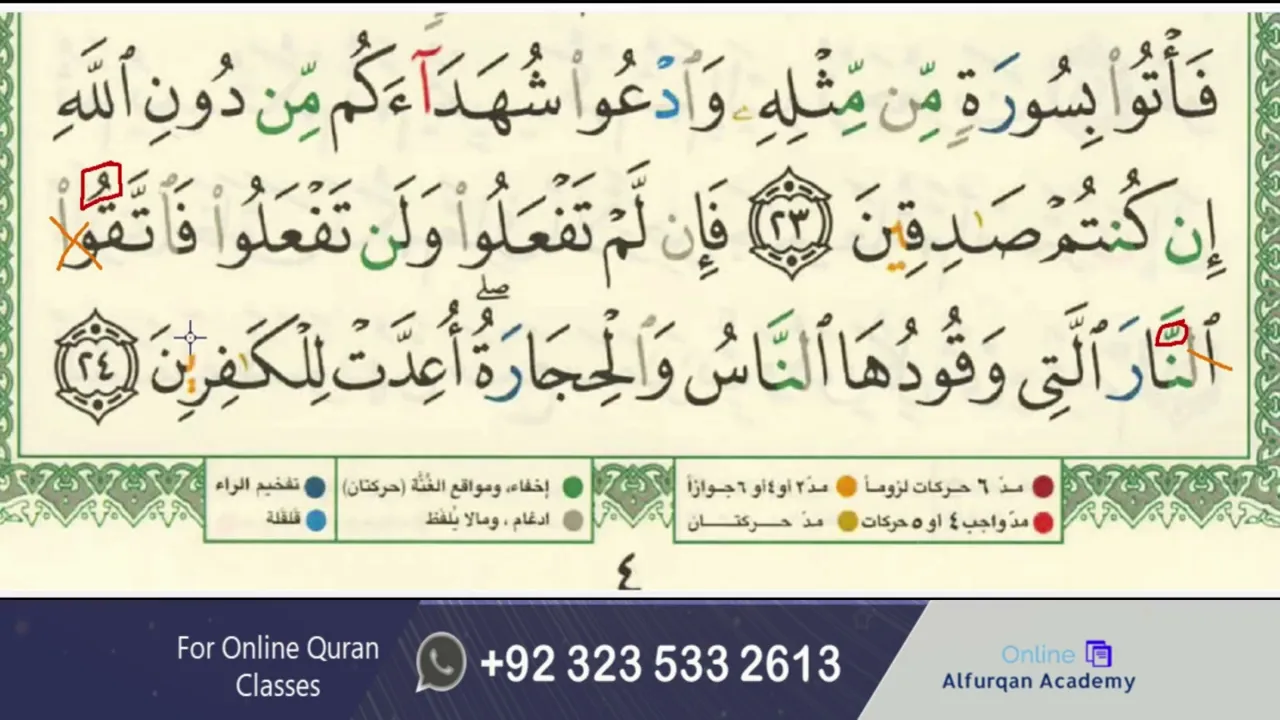 فَأْتُوا۟ بِسُورَةٍ مِّن مِّثْلِهِۦ وَٱدْعُوا۟ شُهَدَآءَكُم مِّن دُونِ ٱللَّهِ
إِن كُنتُمْ صَـٰدِقِينَ ٢٣ فَإِن لَّمْ تَفْعَلُوا۟ وَلَن تَفْعَلُوا۟ فَٱتَّقُوا۟
ٱلنَّارَ ٱلَّتِى وَقُودُهَا ٱلنَّاسُ وَٱلْحِجَارَةُ ۖ أُعِدَّتْ لِلْكَـٰفِرِينَ ٢٤
مدّ ٦ حركات لزوماً مدّ ٢ أو ٤ أو ٦ جوازاً إخفاء، ومواقع الغُنَّة (حركتان) تفخيم الراء
مدّ واجب ٤ أو ٥ حركات مدّ حركتان ادغام، ومالا يُلفَظ قلقلة
٤
For Online Quran Classes
+92 323 533 2613
Online
Alfurqan Academy